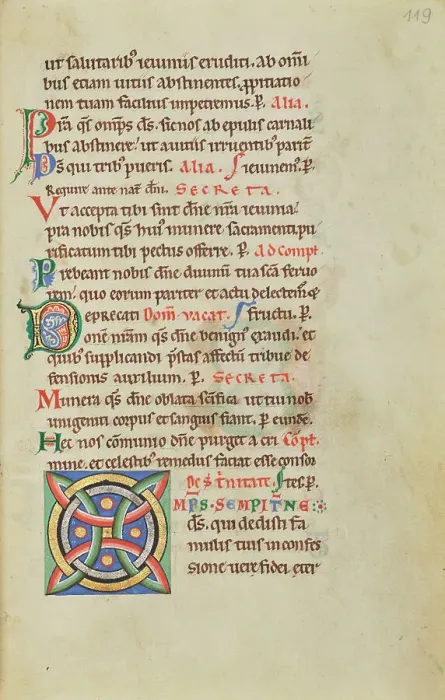 119
ut salutarib⁹ ieiuniis eruditi. ab om̅i
bus etiam uitiis abstinentes. ꝓpitiatio
nem tuam facilius impetremus. P̱. Alia.
Pr̅a q̅s om̅ps d̅s. sic nos ab epulis carnali
bus abstinere. ut a uitiis irruentib⁹ parit̅
D̅s qui trib⁹ pueris. Alia. ieiunem⁹. P̱.
Require ante nat̅ d̅ni. SECRETA.
Vt accepta tibi sint d̅ne n̅ra ieiunia.
p̅ra nobis q̅s hui⁹ munere sacramenti. pu
rificatum tibi pectus offerre. P̱. Ad Compt.
Prebeant nobis d̅ne diuinu̅ tua s̅ca feruo
rem. quo eorum pariter et actu delectem̅
DEPRECATI Dom̅. vacat. fructu. P̱.
onem n̅ram q̅s d̅ne benign⁹ exaudi. et
quib⁹ supplicandi p̅stas affectu̅ tribue de
fensionis auxilium. P̱. SECRETA.
Munera q̅s d̅ne oblata s̅c̅ifica. ut tui nob̅
unigeniti corpus et sanguis fiant. P̱ eunde̅.
Hec nos co̅munio d̅ne purget a cri Co̅pt.
mine. et celestib⁹ remediis faciat esse consor
De S. Trinitate tes. P̱.
OMPS. SEMPITNE:
d̅s. qui dedisti fa
mulis tuis in confes
sione uere fidei. eter